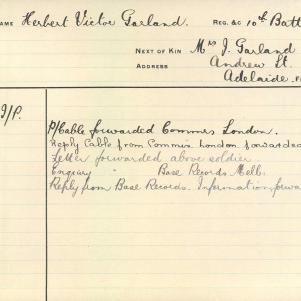 NAME Herbert Victor Garland. REG. &C 10th Batt
NEXT OF KIN Mrs J. Garland
ADDRESS Andrew St.
Adelaide.
I/P.
P/Cable forwarded Commrs London.
Reply Cable from Commrs London forwarded
Letter forwarded above soldier
Enquiry " Base Records Melb.
Reply from Base Records. Information forwa